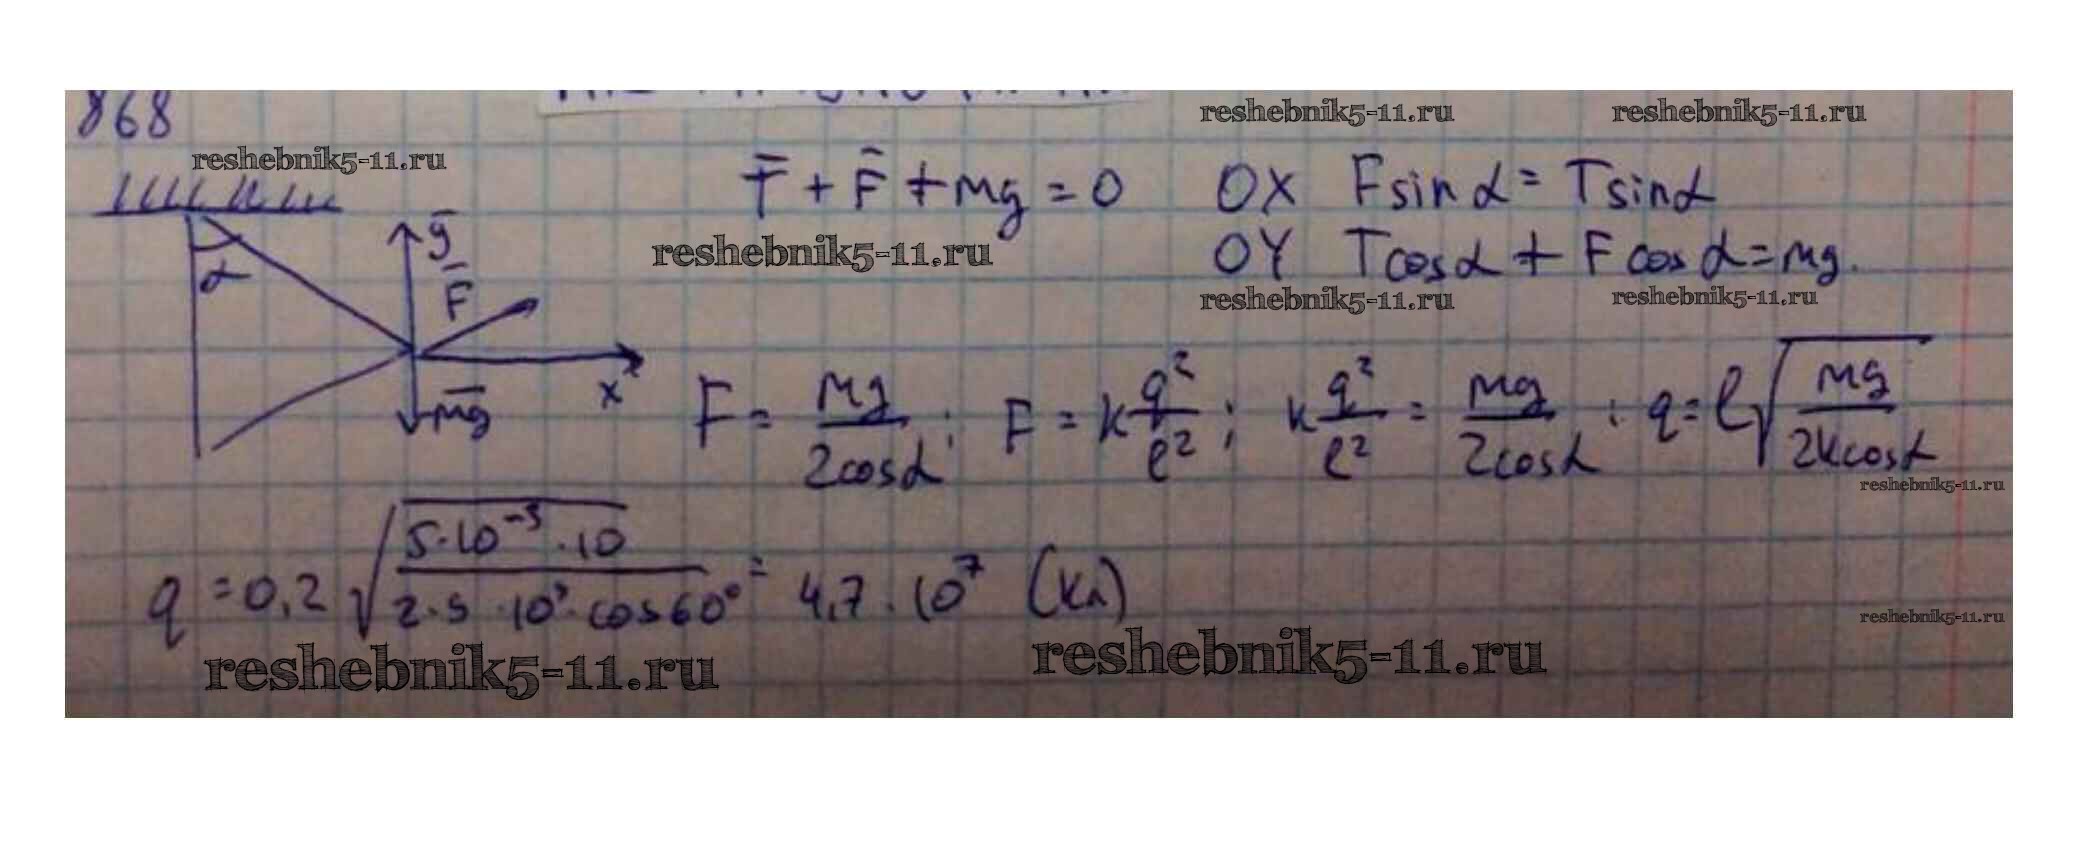 868
reshebnik5-11.ru
reshebnik5-11.ru
reshebnik5-11.ru
T̄ + F̄ + mg = 0
OX F sin α = T sin α
reshebnik5-11.ru
OY T cos α + F cos α = mg.
reshebnik5-11.ru
reshebnik5-11.ru
α
ȳ
F̄
x
m̄ḡ
F = mg / 2cosα ; F = k q² / l² ; k q² / l² = mg / 2cosα ; q = l √(mg / 2kcosα)
reshebnik5-11.ru
q = 0,2 √(5·10⁻³·10 / 2·5·10⁹·cos60°) = 4,7·10⁷ (Кл)
reshebnik5-11.ru
reshebnik5-11.ru
reshebnik5-11.ru